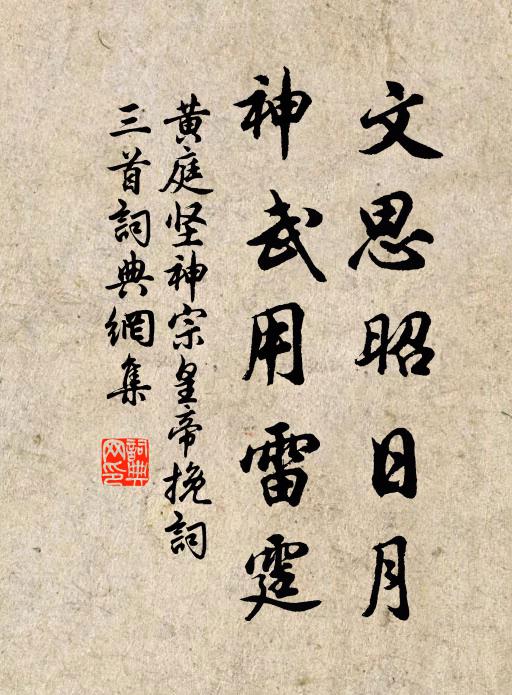 文思昭日月
神武用雷霆
黄庭坚神宗皇帝挽詞
三首詞典網集
詞典网印